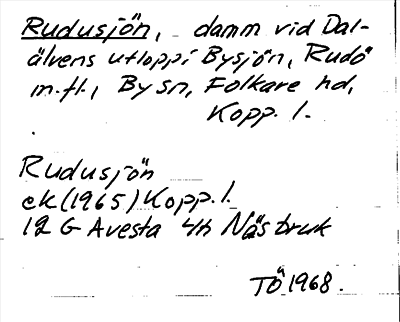 Rudusjön, damm vid Dal-
älvens utlopp i Bysjön, Rudö
m.fl., By sn, Folkare hd,
Kopp. l.
Rudusjön
ek (1965) Kopp. l.
12 G Avesta 4h Näs bruk
TÖ 1968.